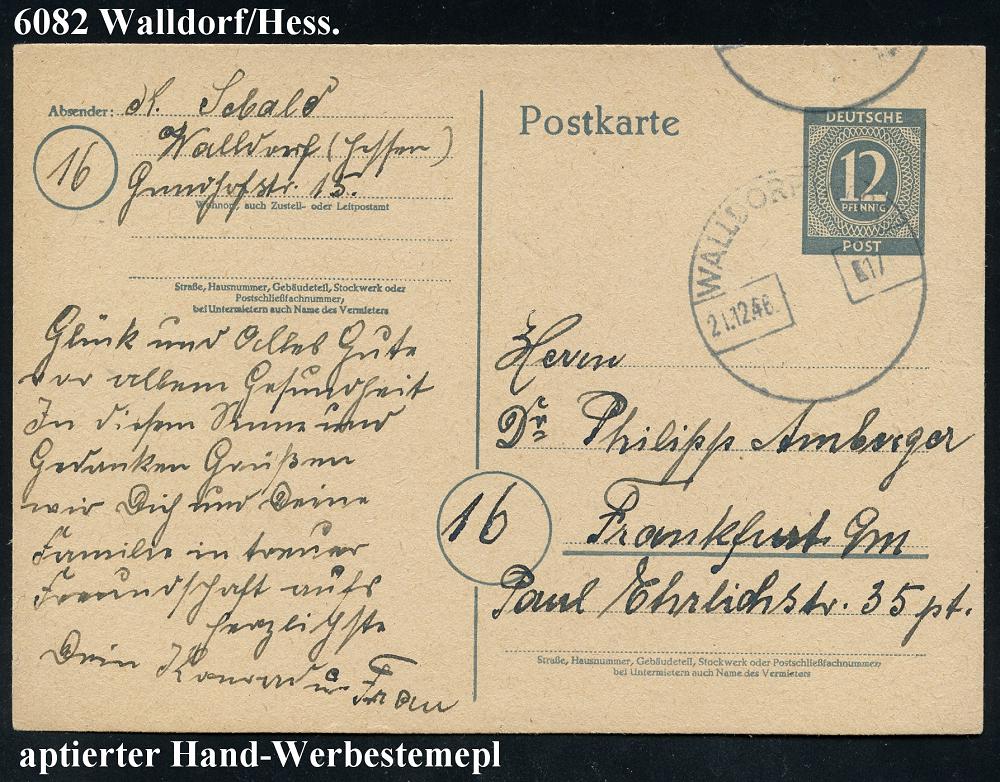 6082 Walldorf/Hess.
Absender: K. Sebald
16
Walldorf (Hessen)
Grundhofstr. 15.
Wohnort, auch Zustell- oder Leitpostamt
Straße, Hausnummer, Gebäudeteil, Stockwerk oder
Postschließfachnummer,
bei Untermietern auch Name des Vermieters
Glück und Alles Gute
vor allem Gesundheit
In diesem Sinne und
Gedanken Grüßen
wir Dich und Deine
Familie in treuer
Freundschaft aufs
herzlichste
Dein Konrad u. Frau
Postkarte
DEUTSCHE
12
PFENNIG
POST
WALLDORF
21.12.46.
17
Herrn
Dr. Philipp Amberger
16
Frankfurt a/m
Paul Ehrlichstr. 35 pt.
Straße, Hausnummer, Gebäudeteil, Stockwerk oder Postschließfachnummer;
bei Untermietern auch Name des Vermieters
aptierter Hand-Werbestemepl